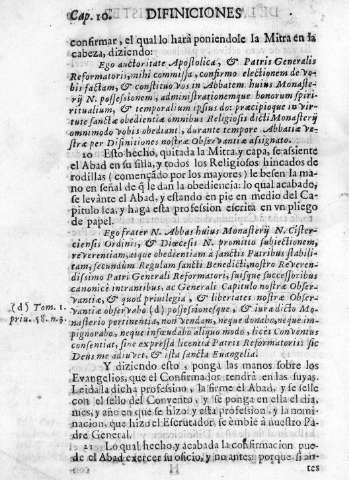 Cap. 10. DIFINICIONES
confirmar, el qual lo hará poniendole la Mitra en la
cabeza, diziendo:
Ego auctoritate Apostolica, & Patris Generalis
Reformatoris, mihi commissa, confirmo electionem de vo-
bis factam, & constituo vos in Abbatem huius Monaste-
rij N. possessionem, administrationemque bonorum spiri-
ritualium, & temporalium ipsius do: præcipioque in vir-
tute sanctæ obedientiæ omnibus Religiosis dicti Monasterij
omnimodo vobis obediant, durante tempore Abbatiæ ve-
stræ per Difinitiones nostræ Observantiæ assignato.
10 Esto hecho, quitada la Mitra y capa, se assiente
el Abad en su silla, y todos los Religiosos hincados de
rodillas (començado por los mayores) le besen la ma-
no en señal de q̃ le dan la obediencia: lo qual acabado,
se levante el Abad, y estando en pie en medio del Ca-
pitulo lea, y haga esta profession escrita en vn pliego
de papel.
Ego frater N. Abbas huius Monasterij N. Cister-
ciensis Ordinis, & Diœcesis N. promitto subiectionem,
reverentiam, atque obedientiam à sanctis Patribus stabili-
tam, secundùm Regulam sancti Benedicti, nostro Reveren-
dissimo Patri Generali Reformatori, suisque successoribus
canonicè intrantibus, ac Generali Capitulo nostræ Obser-
vantiæ, & quod privilegia, & libertates nostræ Obser-
vantiæ observabo (d) possessionesque, & iura dicto Mo-
nasterio pertinentia, non vendam, neque donabo, neque im-
pignorabo, neque infeudabo aliquo modo, licèt Conventus
consentiat, sine expressa licentia Patris Reformatoris sic
Deus me adiuvet, & ista sancta Euangelia.
(d) Tom. 1.
priu. 58. n. 3.
Y diziendo esto, ponga las manos sobre los
Evangelios, que el Confirmador tendrá en las suyas.
Leida la dicha profession, la firme el Abad, y se selle
con el sello del Convento, y se ponga en ella el dia,
mes, y año en que se hizo: y esta profession, y la nomi-
nacion, que hizo el Escrutador, se embie à nuestro Pa-
dre General.
11 Lo qual hecho, y acabada la confirmacion pue-
de el Abad exercer su oficio, y no antes; porque si an-
tes